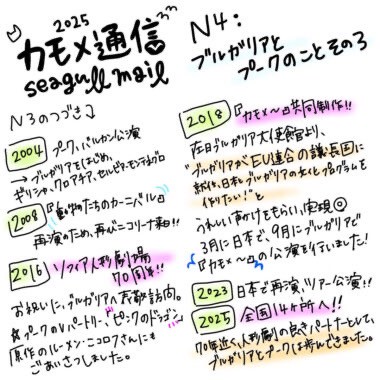 2025
カモメ通信
seagull mail
N3のつづき
2004
プーク、バルカン公演
→ブルガリアをはじめ、
ギリシャ、クロアチア、セルビア・モンテネグロ
2008
『動物たちのカーニバル』
再演のため、再びニコリーナ来日!!
2016
ソフィア人形劇場
70周年!!
お祝いに、ブルガリアへ表敬訪問。
☆プークのレパートリー、『ピンクのドラゴン』
原作のルーメン・ニコロフさんにも
ごあいさつしました。
N4:
ブルガリアと
プークのことその3
2018
『カモメ〜』共同制作!!
在日ブルガリア大使館より、
"ブルガリアがEU連合の議長国に
新作、日本とブルガリアの文化プログラムを
作りたい!"と
うれしい声かけをもらい、実現◎
3月に日本で、9月にブルガリアで
『カモメ〜』の公演を行いました!
2023
日本で再演、ツアー公演!!
2025
全国14ヶ所へ!!
70年近く、人形劇の良きパートナーとして、
ブルガリアとプークは歩んできました。